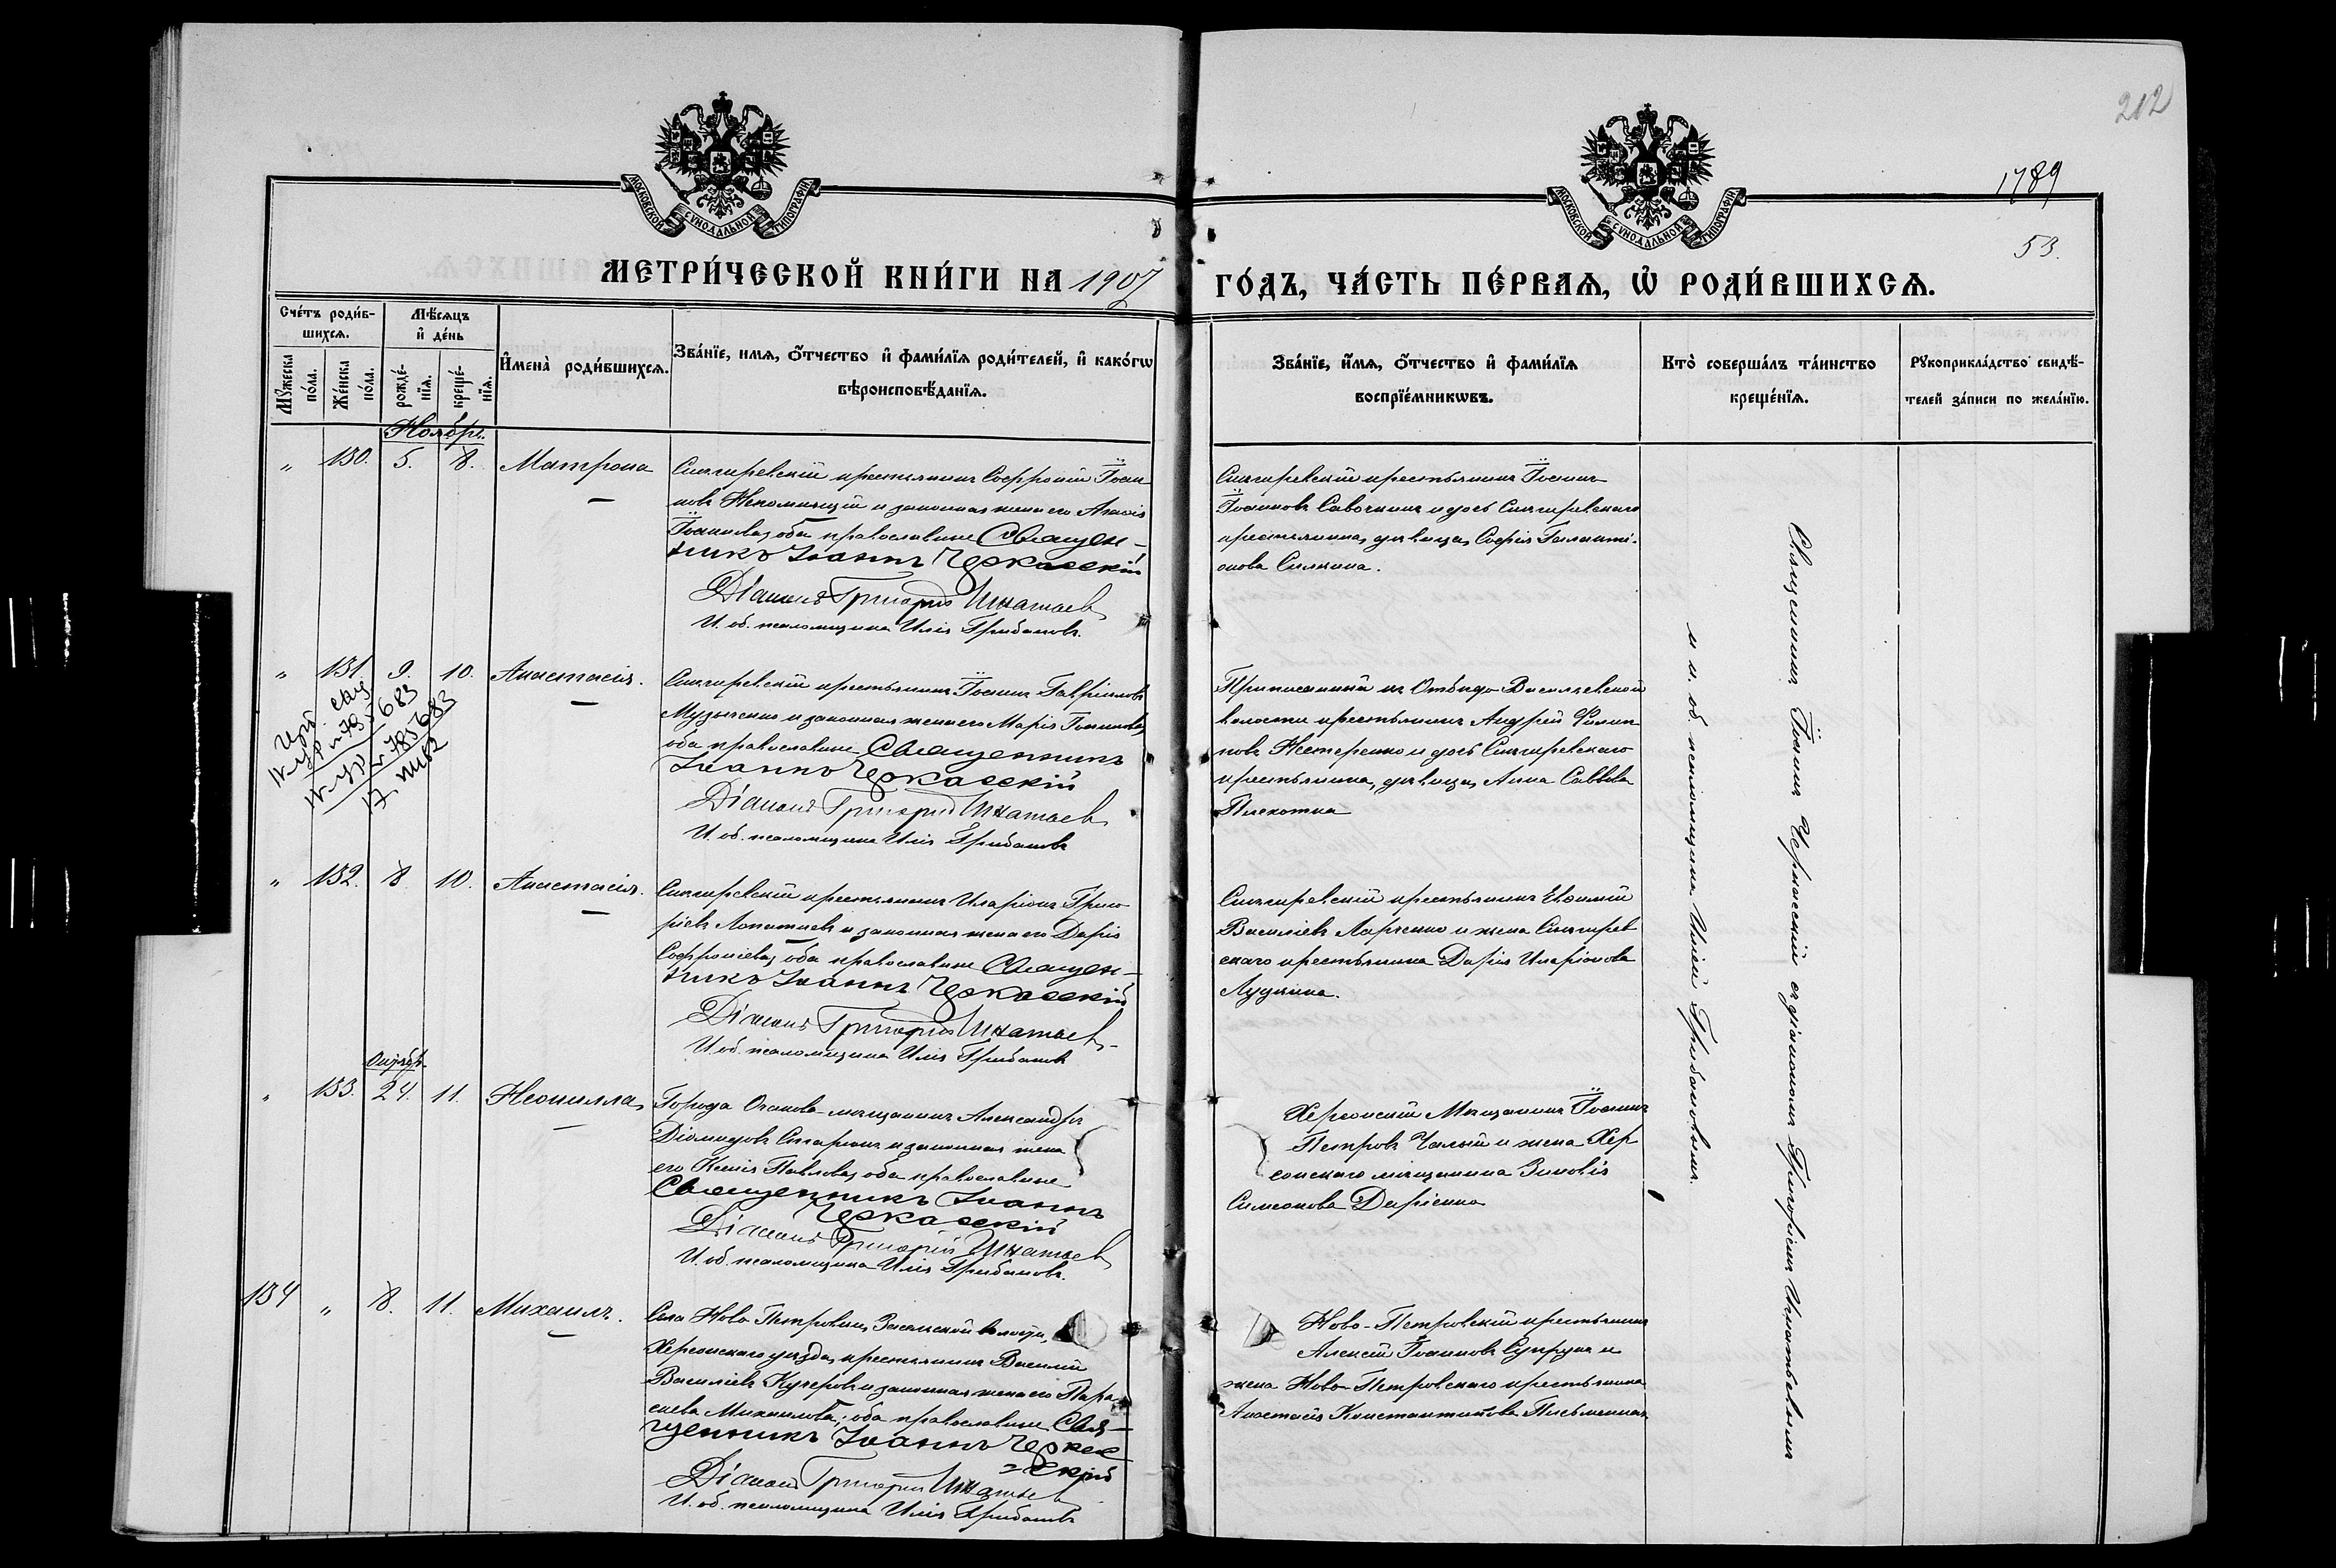 212
1789
53.
МОСКОВСКОЙ СУНОДАЛЬНОЙ ТИПОГРАФІИ
МОСКОВСКОЙ СУНОДАЛЬНОЙ ТИПОГРАФІИ
МЕТРИ́ЧЕСКОЙ КНИ́ГИ НА 1907
ГО́ДЪ, ЧА́СТЬ ПЕ́РВАѦ, Ѡ҆ РОДИ́ВШИХСѦ.
Сче́тъ роди́в-
шихсѧ.
Мѣ́сѧцъ
и҆ де́нь
Мꙋ́жеска
по́ла.
Же́нска
по́ла.
рожде́-
нїѧ.
креще́-
нїѧ.
И҆мена̀ роди́вшихсѧ.
Зва́нїе, имѧ, ѻ҆́тчество и҆ фами́лїѧ роди́телей, и҆ како́гѡ
вѣроисповѣ́данїѧ.
Зва́нїе, и҆́мѧ, ѻ҆́тчество и҆ фами́лїѧ
воспрїе́мникѡвъ.
Кто̀ соверша́лъ та́инство
креще́нїѧ.
Рꙋкоприкла́дство свидѣ́-
телей за́писи по жела́нїю.
Ноябрь.
" 130. 5. 8. Матрона
Снигиревскій крестьянинъ Софроній Іоан
новъ Непомнящій и законная жена его Анасія
Іоаннова, оба православные Священ-
никъ Іоаннъ Черкасскій
Діаконъ Григорій Игнатьев
И. об. псаломщика Илія Грибановъ.
Снигиревскій крестьянинъ Іоаннъ
Іоанновъ Савочкинъ и дочь Снигиревскаго
крестьянина, дѣвица, Софія Галакті-
онова Силкина.
" 131. 9. 10. Анастасія.
Снигиревскій крестьянинъ Іоаннъ Гавріиловъ
Музыченко и законная жена его Марія Іоаннова,
оба православные Священникъ
Іоаннъ Черкасскій
Діаконъ Григорій Игнатьев
И. об. псаломщика Илія Грибановъ
Приписанный къ Отбѣдо-Васильевской
волости крестьянинъ Андрей Филип
повъ Нестеренко и дочь Снигиревскаго
крестьянина, дѣвица, Анна Саввова
Плехотка
" 132. 8. 10. Анастасія.
Снигиревскій крестьянинъ Иларіонъ Григо
ріевъ Лопатневъ и законная жена его Дарія
Софроніева, оба православные Священ-
никъ Іоаннъ Черкасскій
Діаконъ Григорій Игнатьев
И об. псаломщика Илія Грибановъ
Снигиревскій крестьянинъ Евѳимій
Василіевъ Марченко и жена Снигирев
скаго крестьянина Дарія Иларіонова
Лудкина.
Октябрь.
" 133. 24. 11. Неонилла,
Города Очакова мѣщанинъ Александръ
Діомидовъ и законная жена
его Ксенія Павлова, оба православные
Священникъ Іоаннъ
Черкасскій
Діаконъ Григорій Игнатьев
И. об. псаломщика Илія Грибановъ.
Херсонскій Мѣщанинъ Іоаннъ
Петровъ Чалый и жена Хер
сонскаго мѣщанина Зиновія
Симеонова Даріенко
134 " 8. 11. Михаилъ.
Села Ново-Петровки, Засельской волости,
Херсонскаго уѣзда, крестьянинъ Василій
Василіевъ Кучеровъ и законная жена его Пара
скева Михаилова; оба православные Свя-
щенникъ Іоаннъ Черкас
-скій
Діаконъ Григорій Игнатьев
И. об. псаломщика Илія Грибановъ
Ново-Петровскій крестьянинъ
Алексій Іоанновъ Супрунъ и
жена Ново-Петровскаго крестьянина
Анастасія Константинова Письменная
Священникъ Іоаннъ Черкасскій съ діакономъ Григоріемъ Игнатьевымъ
и и. об. псаломщика Иліею Грибановымъ.